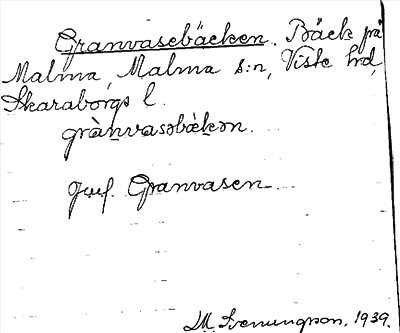 Granvasebäcken. Bäck på
Malma, Malma s:n, Viste hd,
Skaraborgs l.
grànvasəbækən.
Jmf. Granvasen
M. Svenungsson, 1939.